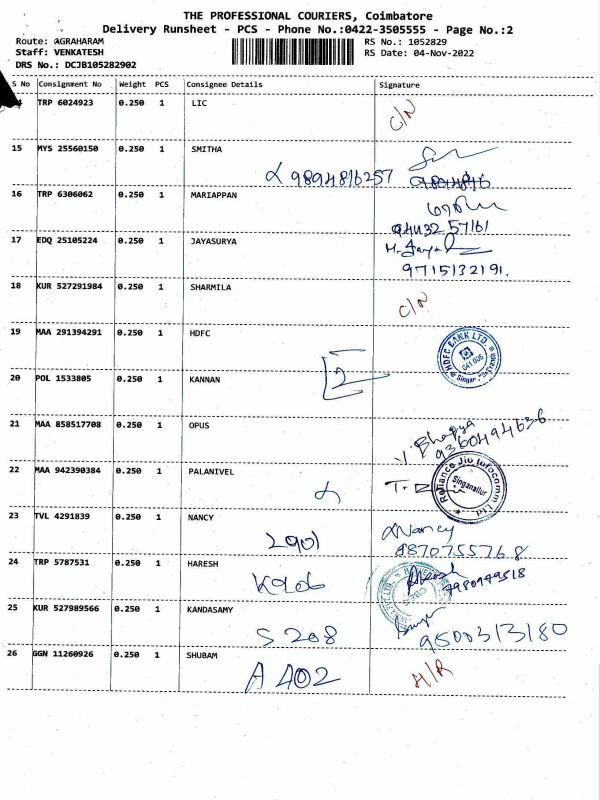 THE PROFESSIONAL COURIERS, Coimbatore
Delivery Runsheet - PCS - Phone No.:0422-3505555 - Page No.:2
Route: AGRAHARAM RS No.: 1052829
Staff: VENKATESH RS Date: 04-Nov-2022
DRS No.: DCJB105282902
S No Consignment No Weight PCS Consignee Details Signature
4 TRP 6024923 0.250 1 LIC C/N
15 MYS 25560150 0.250 1 SMITHA
9894816257
16 TRP 6306062 0.250 1 MARIAPPAN
94432 57161
17 EDQ 25105224 0.250 1 JAYASURYA
9715132191.
18 KUR 527291984 0.250 1 SHARMILA C/N
19 MAA 291394291 0.250 1 HDFC HDFC BANK LTD.
20 POL 1533805 0.250 1 KANNAN
2
21 MAA 858517708 0.250 1 OPUS
9360494636
22 MAA 942390384 0.250 1 PALANIVEL
Reliance Jio Infocomm Ltd Singanallur
23 TVL 4291839 0.250 1 NANCY Nancy
2901 8870755768
24 TRP 5787531 0.250 1 HARESH
K906 7980949518
25 KUR 527989566 0.250 1 KANDASAMY
S 208 9500313180
26 GGN 11260926 0.250 1 SHUBAM
A 402 H/R